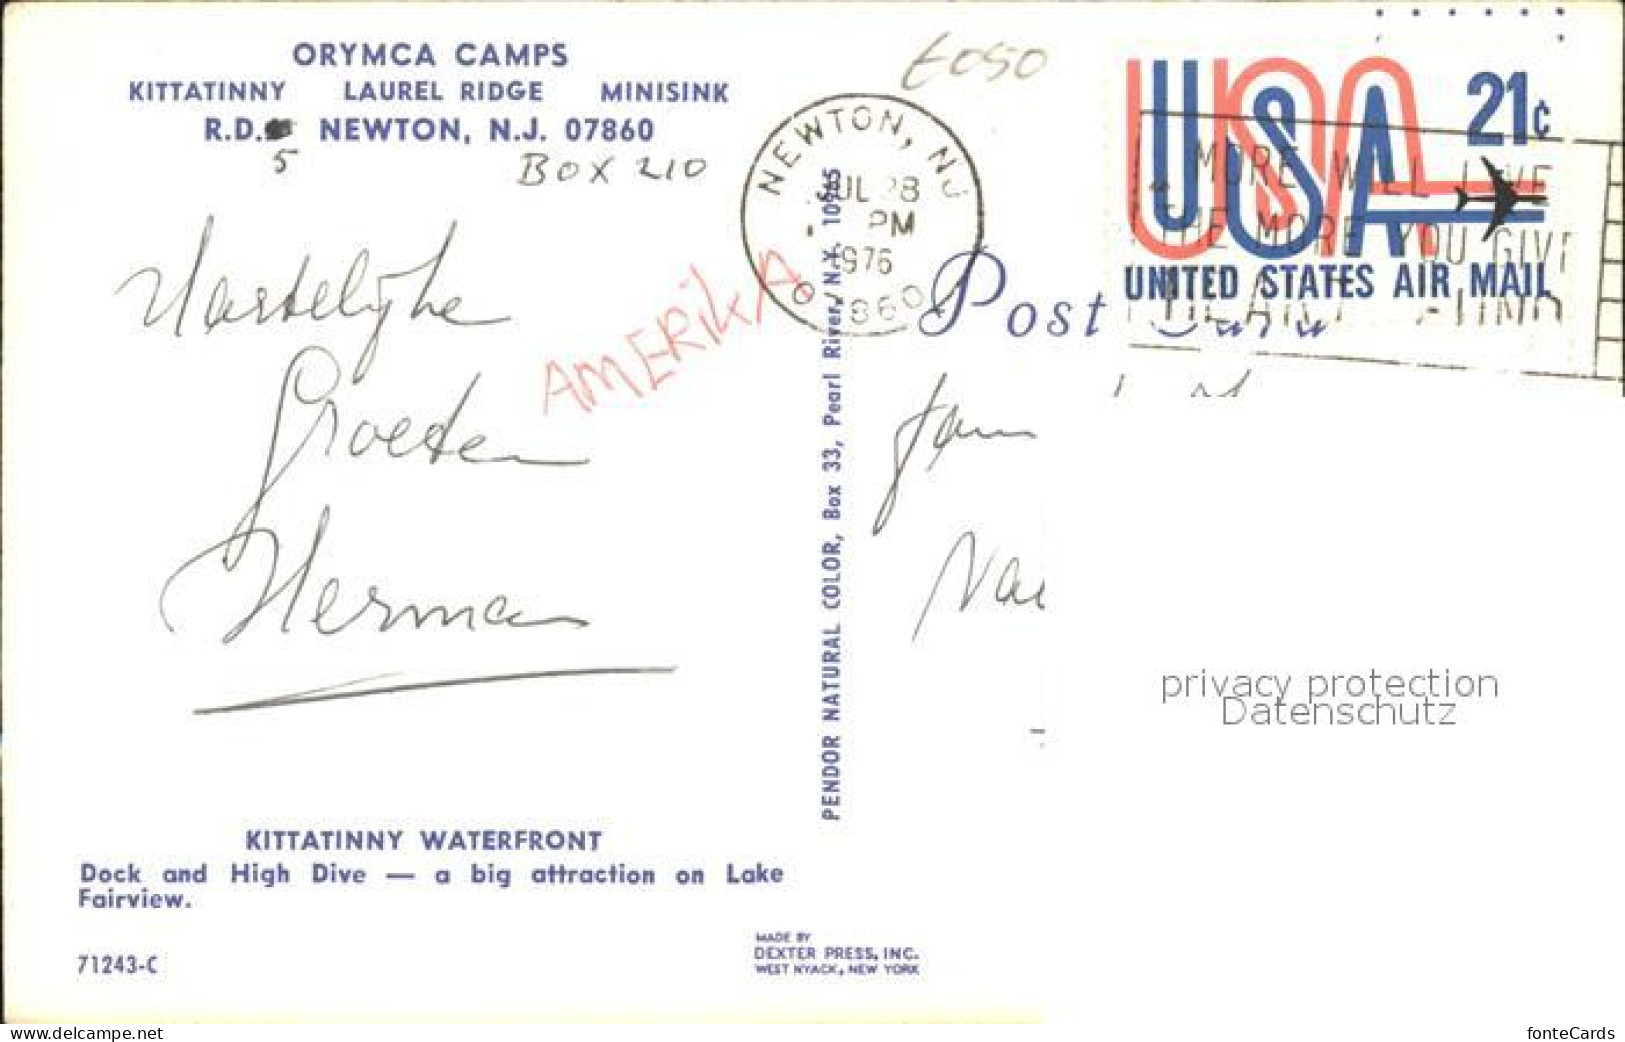 ORYMCA CAMPS
KITTATINNY LAUREL RIDGE MINISINK
R.D. NEWTON, N.J. 07860
5 BOX 210
Hartelijke
Groeten
Herman
AMERIKA
KITTATINNY WATERFRONT
Dock and High Dive — a big attraction on Lake
Fairview.
71243-C
PENDOR NATURAL COLOR, Box 33, Pearl River, N.Y. 10965
MADE BY
DEXTER PRESS, INC.
WEST NYACK, NEW YORK
6050
NEWTON, NJ
PM
1976
Post
USA
21c
UNITED STATES AIR MAIL
MORE WILL LIVE
THE MORE YOU GIVE
HEART FUND
Fam
privacy protection
Datenschutz
www.delcampe.net
fonteCards